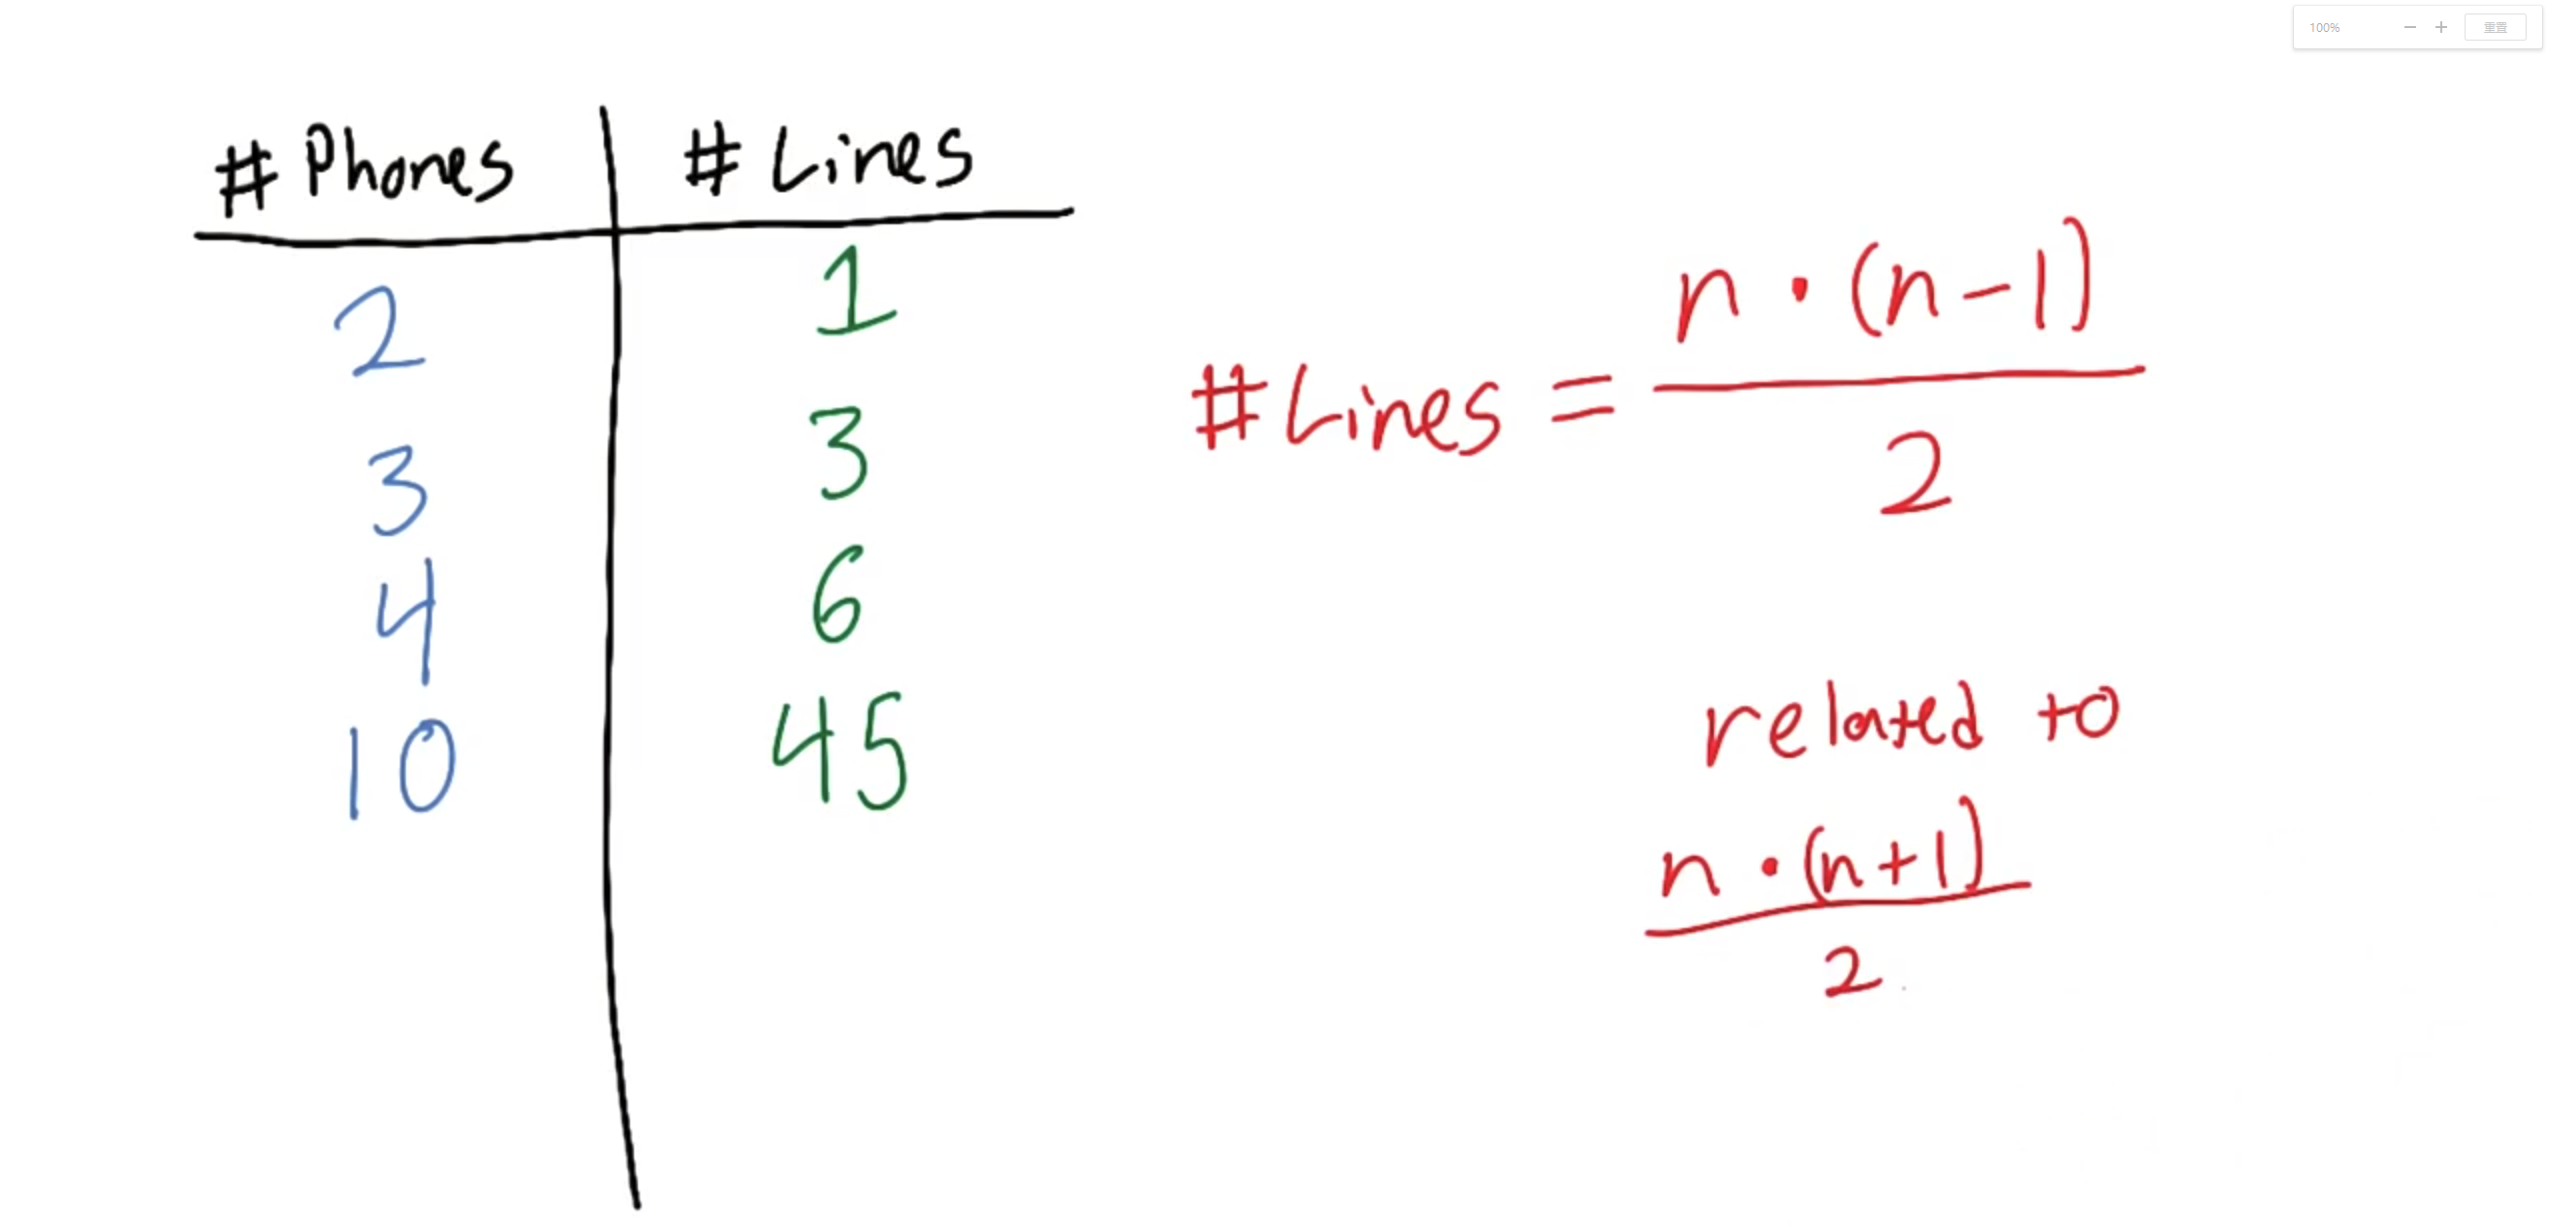 100% − + 重置
# Phones # Lines
2 1
3 3
4 6
10 45
#Lines = n · (n-1) / 2
related to
n · (n+1)
2